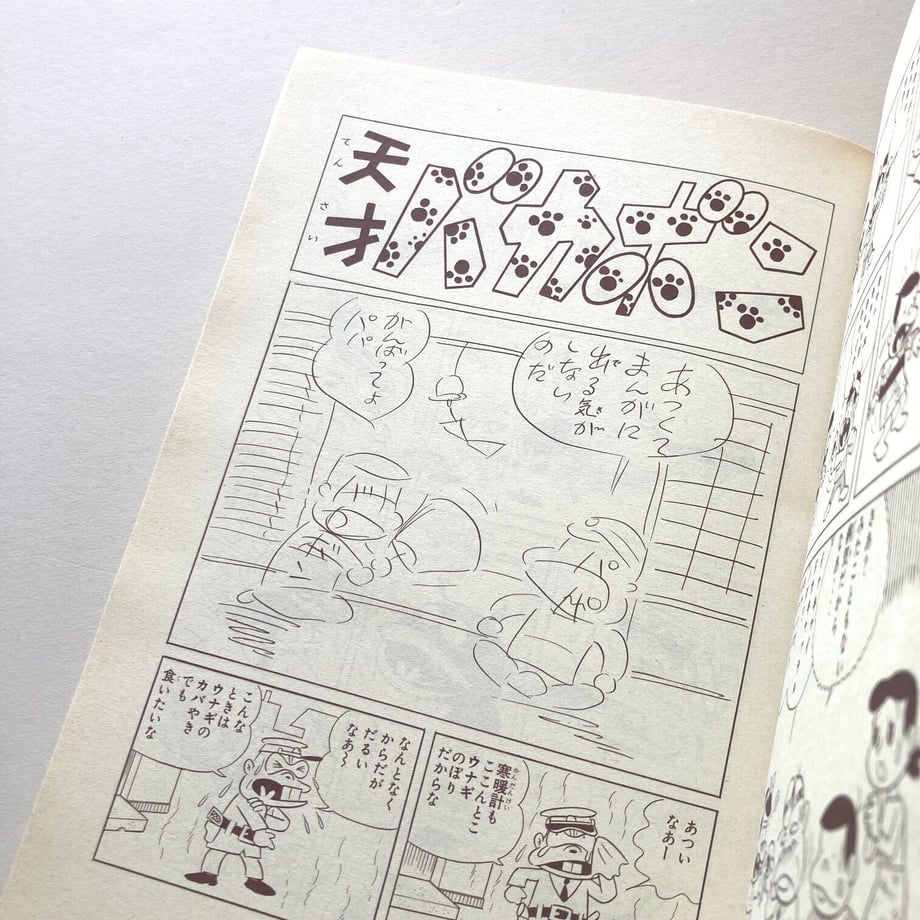 天才
てんさい
バカボン
あつくて
まんがに
出る気が
しない
のだ
がんばってよ
パパ
あつい
なあー
寒暖計も
かんだんけい
ここんとこ
ウナギ
のぼり
だからな
なんとなく
からだが
だるい
なあ〜
こんな
ときは
ウナギの
カバやき
でも
食いたいな